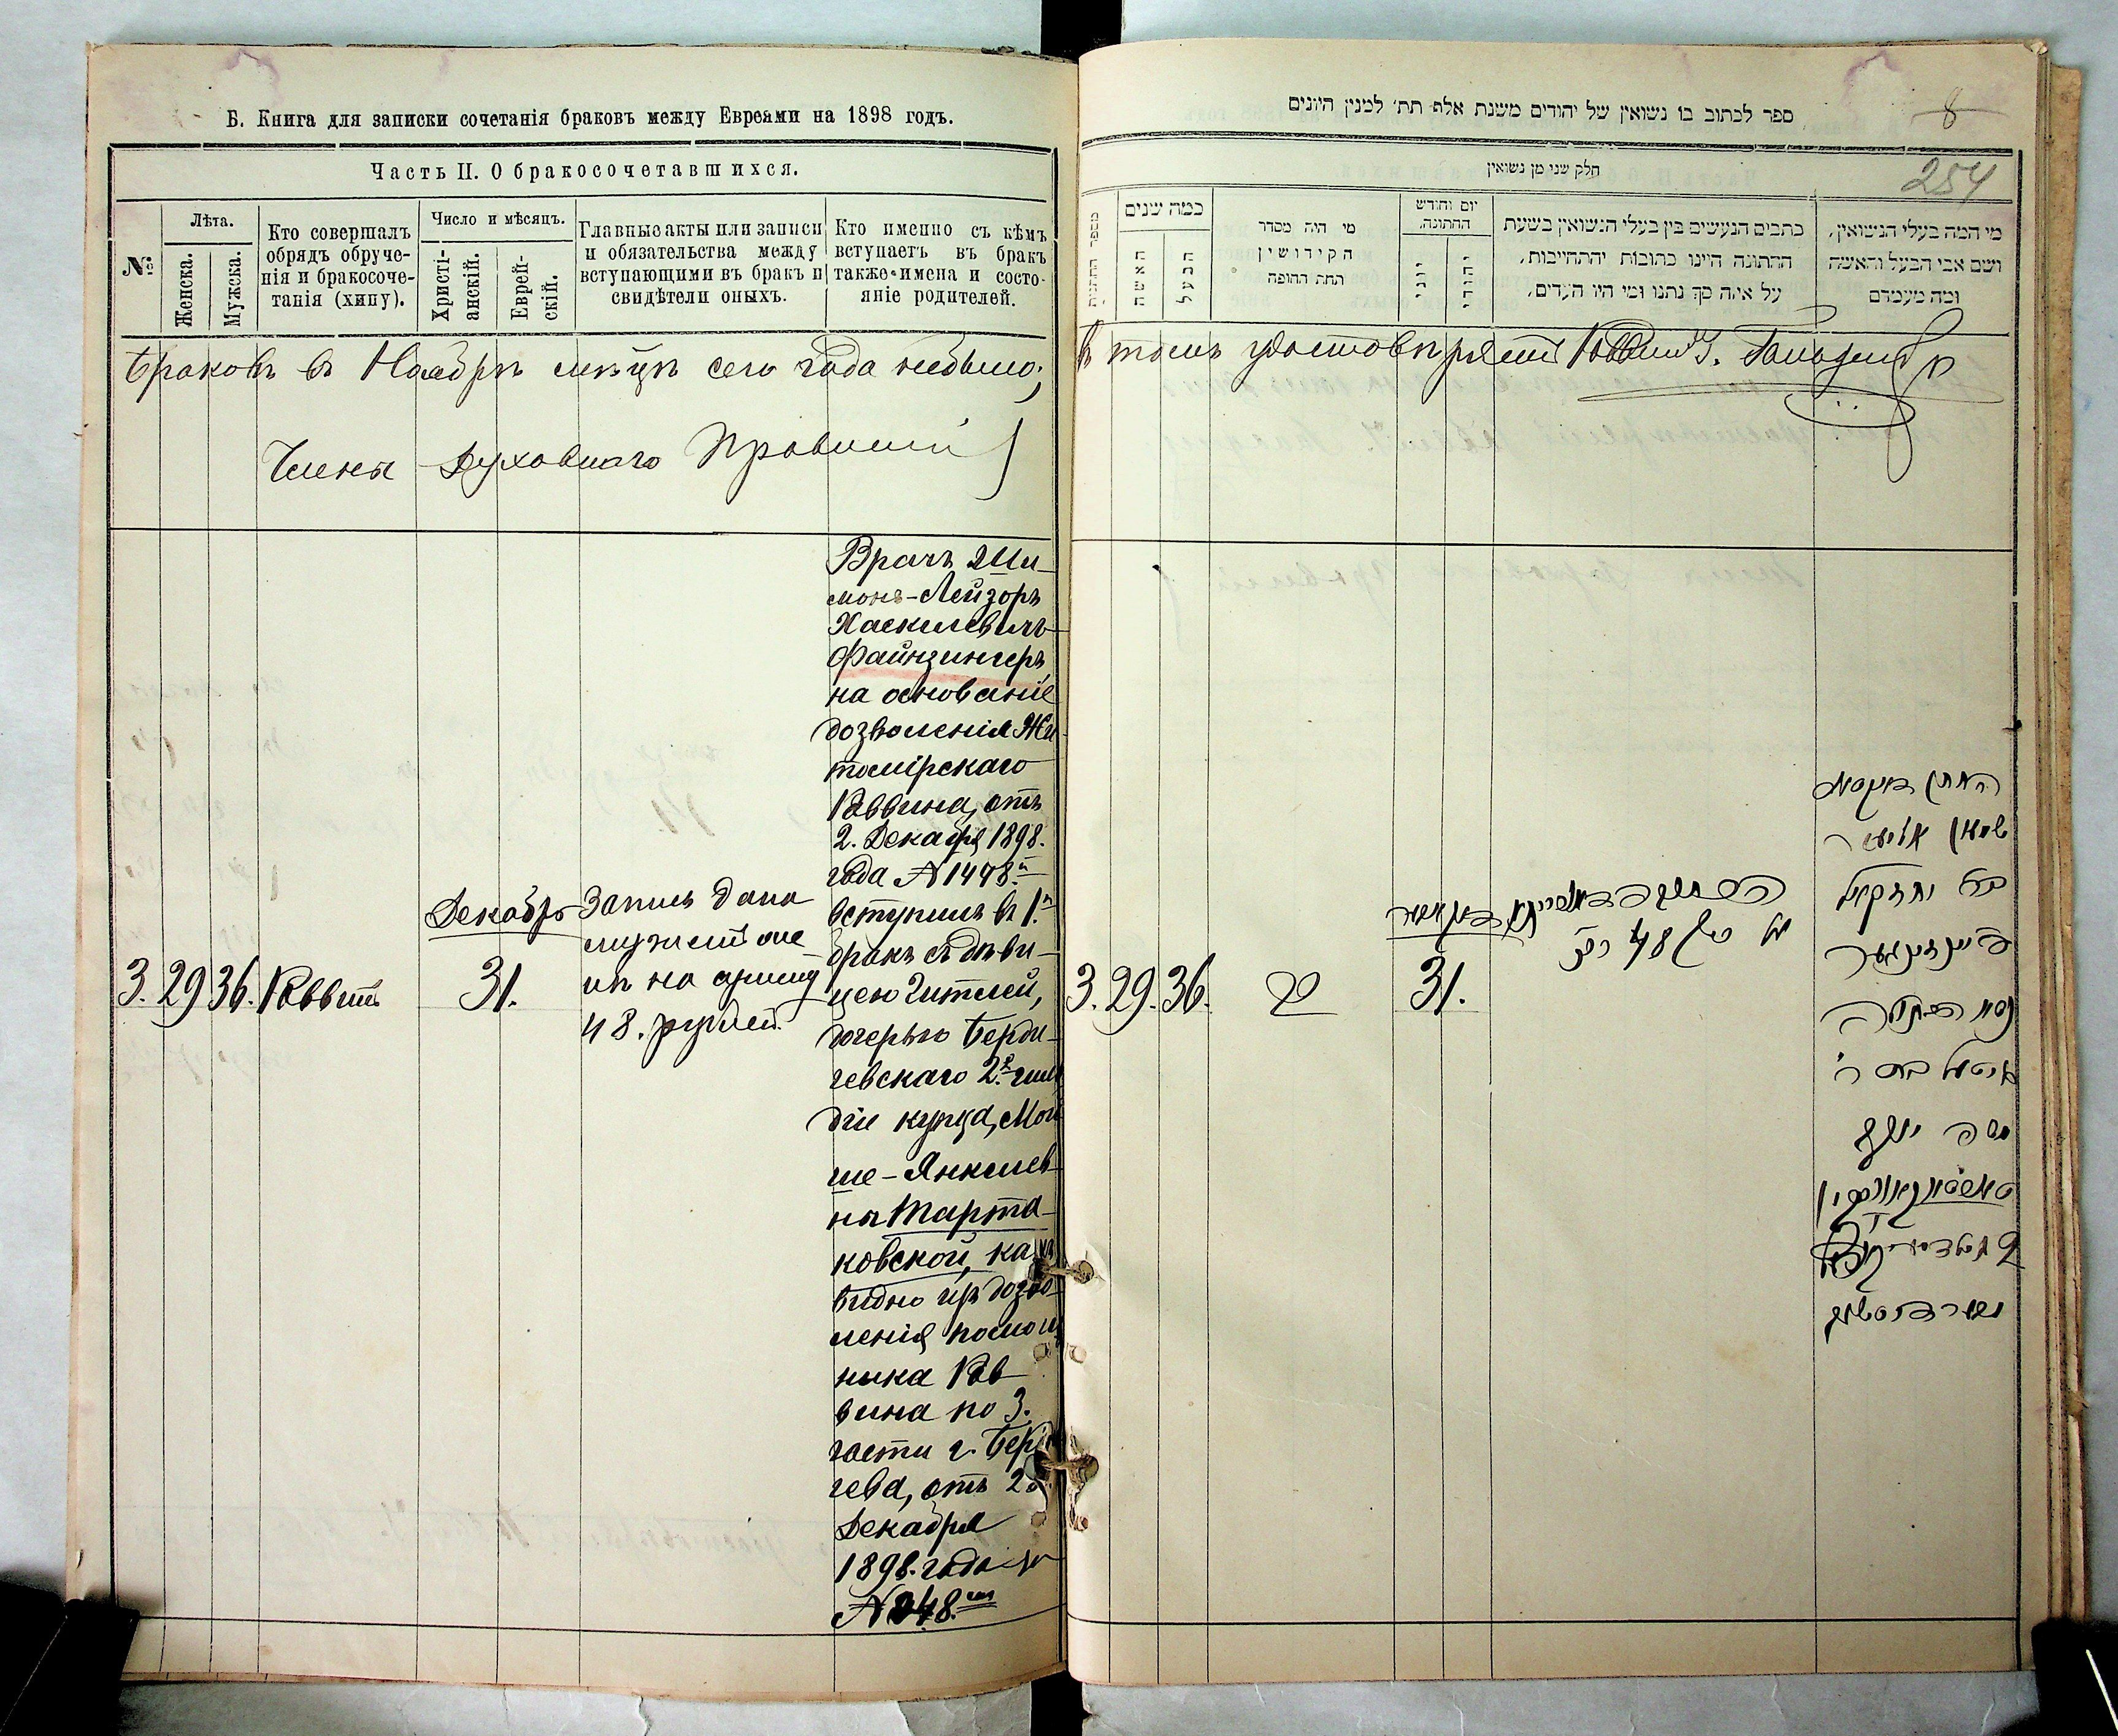 Б. Книга для записки сочетанія браковъ между Евреями на 1898 годъ.
Часть II. О бракосочетавшихся.
№
Лѣта.
Женска.
Мужска.
Кто совершалъ
обрядъ обруче-
нія и бракосоче-
танія (хипу).
Число и мѣсяцъ.
Христі-
анскій.
Еврей-
скій.
Главные акты или записи
и обязательства между
вступающими въ бракъ и
свидѣтели оныхъ.
Кто именно съ кѣмъ
вступаетъ въ бракъ
также имена и состо-
яніе родителей.
браковъ въ Ноябрѣ мѣсцѣ сего года небыло;
Члены Духовнаго Правленія
3. 29 36. Раввинъ
Декабрь
31.
Запись дана
48. рублей.
Врачъ Ши-
монъ-Лейзоръ
Хаскилевичъ
Файнзингеръ,
на основаніе
дозволенія Жи-
томірскаго
Раввина, отъ
2. Декабря 1898.
года №1448.й
вступилъ въ 1.й
бракъ съ дѣви-
цею Гителей,
дочерью Берди-
чевскаго 2.й гиль
діи купца, Мой
ше-Янкелев-
ны Тарта-
ковской, какъ
видно изъ дозво-
ленія помощ
ника Рав-
вина по 3.
части г. Берди
чева, отъ 28
Декабря
1898. года за
ספר לכתוב בו נשואין של יהודים משנת אלף תת׳ למנין היונים
8
254
חלק שני מן נשואין
מספר החתונות
כמה שנים
האשה
הבעל
מי היה מסדר
הקידושין
תחת החופה
יום וחודש
החתונה.
יוני
יהודי
כתבים הנעשים בין בעלי הנשואין בשעת
החתונה היינו כתובות והתחייבות,
על איזה סך נתנו ומי היו העדים,
מי המה בעלי הנשואין,
ושם אבי הבעל והאשה
ומה מעמדם
в томъ удостовѣряетъ Раввинъ
3. 29. 36.
31.
על סך 48 רק
החתן
שימון אליעזר
בר׳ יחזקאל
פיינזינגער
עם הבתולה
גיטל בת ר׳
משה יעקב